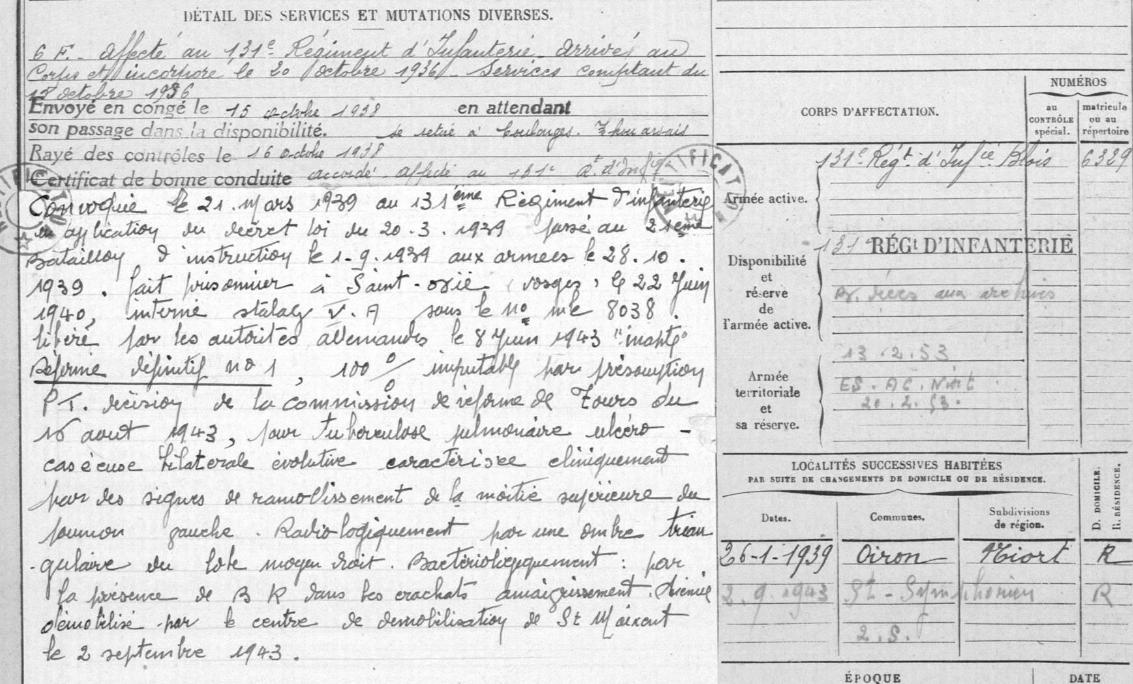 DÉTAIL DES SERVICES ET MUTATIONS DIVERSES.
Affecté au 131e Régiment d'Infanterie, arrivé au
Corps et incorporé le 20 octobre 1936. Services comptant du
octobre 1936
Envoyé en congé le 15 octobre 1938 en attendant
son passage dans la disponibilité. Se retire à Coulonges-Thouarsais
Rayé des contrôles le 16 octobre 1938
Certificat de bonne conduite accordé. Affecté au 131e Rt d'Infie
Convoqué le 21 mars 1939 au 131ème Régiment d'infanterie
en application du décret loi du 20-3-1939 passé au 21ème
Bataillon d'instruction le 1-9-1939 aux armées le 28.10.
1939. fait prisonnier à Saint- (Vosges) le 22 Juin
1940, interné stalag V.A sous le no mle 8038.
libéré par les autorités allemandes le 8 Juin 1943 "inapte"
Réformé définitif no 1, 100% imputable par présomption
P.T. décision de la commission de réforme de Tours du
16 aout 1943, pour tuberculose pulmonaire ulcéro-
caséeuse bilatérale évolutive caractérisée cliniquement
par des signes de ramollissement de la moitié supérieure du
poumon gauche. Radiologiquement par une ombre trian
-gulaire du lobe moyen droit. Bactériologiquement : par
la présence de BK dans les crachats amaigrissement.
démobilisé par le centre de démobilisation de St Maixent
le 2 septembre 1943.
CORPS D'AFFECTATION.
NUMÉROS
au CONTRÔLE spécial.
matricule ou au répertoire
Armée active.
131e Régt d'Infie Blois 6329
Disponibilité
et
réserve
de
l'armée active.
131 RÉGt D'INFANTERIE
aux archives
Armée
territoriale
et
sa réserve.
13.2.53
20.2.53.
LOCALITÉS SUCCESSIVES HABITÉES
PAR SUITE DE CHANGEMENTS DE DOMICILE OU DE RÉSIDENCE.
D. DOMICILE.
R. RÉSIDENCE.
Dates.
Communes.
Subdivisions
de région.
26-1-1939 Oiron Niort R
2.9.1943 St-Symphorien R
2.S.
ÉPOQUE
DATE